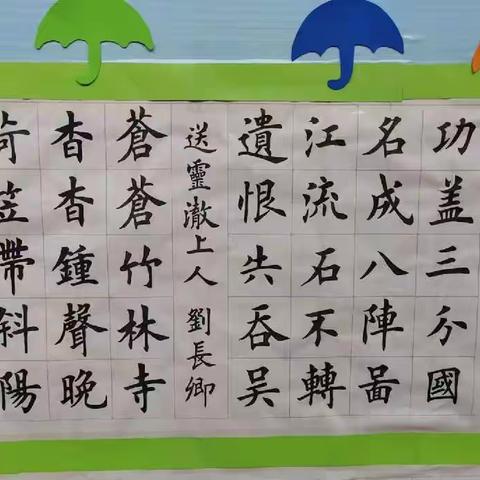 功盖三分國
名成八陣啚
江流石不轉
遺恨失吞吴
送靈澈上人 劉長卿
蒼蒼竹林寺
杳杳鍾聲晚
荷笠帶斜陽